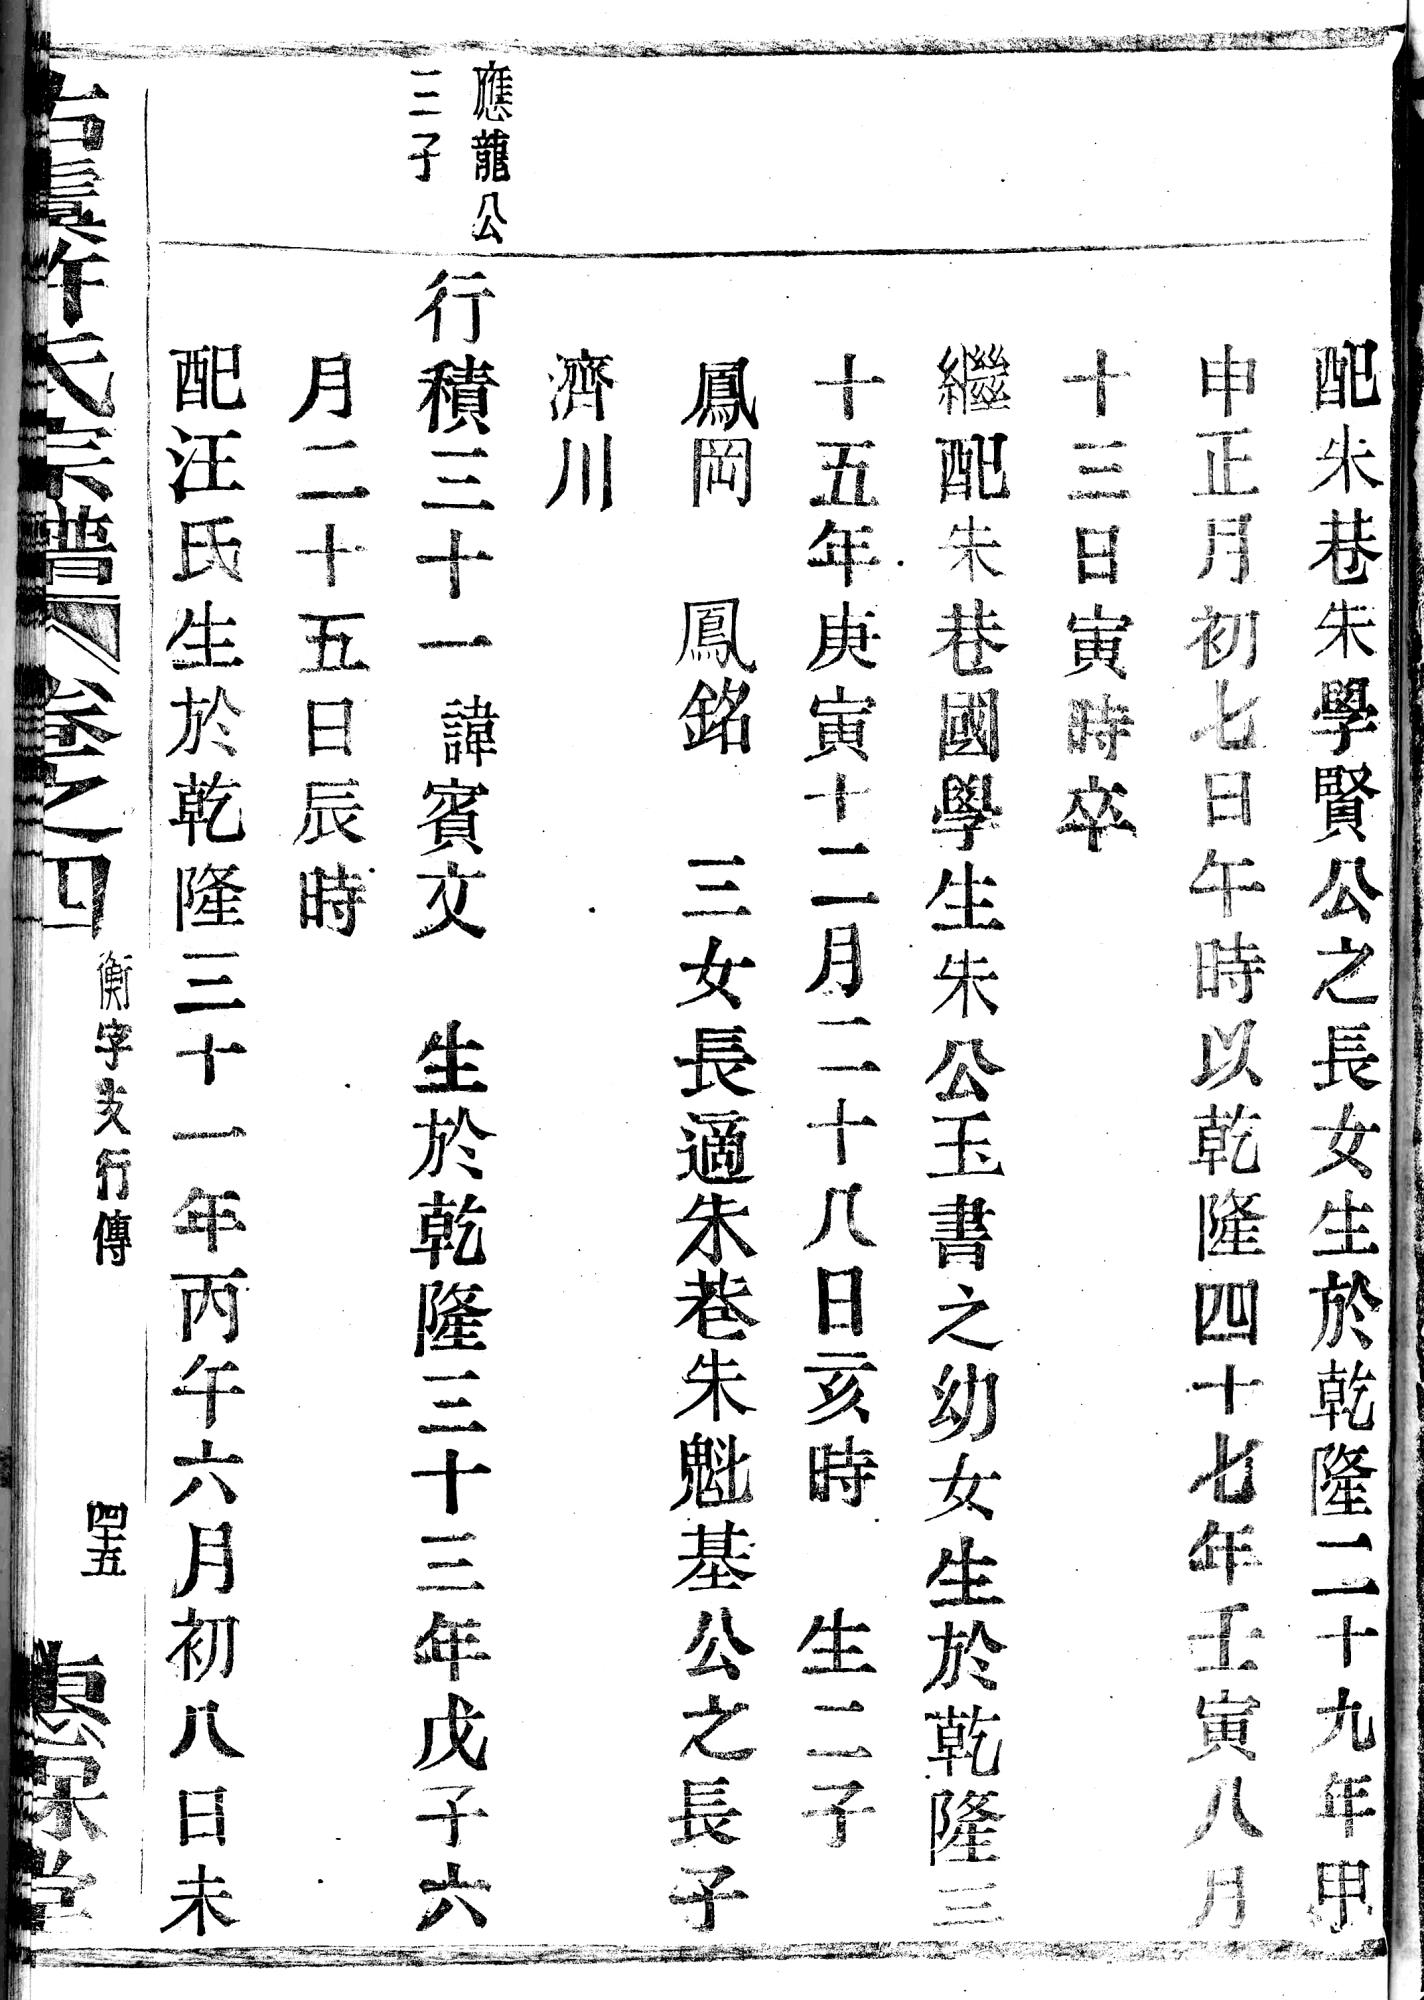 配朱巷朱學賢公之長女生於乾隆二十九年甲
申正月初七日午時以乾隆四十七年壬寅八月
十三日寅時卒
繼配朱巷國學生朱公玉書之幼女生於乾隆三
十五年庚寅十二月二十八日亥時　生二子
鳳岡　鳳銘　三女長適朱巷朱魁基公之長子
濟川
應龍公
三子
行積三十一　諱賓文　生於乾隆三十三年戊子六
月二十五日辰時
配汪氏生於乾隆三十一年丙午六月初八日未
古虞許氏宗譜　卷之四　衡字支行傳　四十五　惠保堂